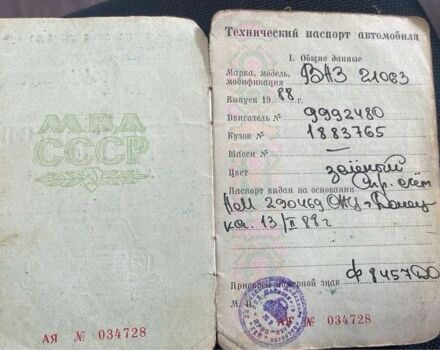 МВД
СССР
АЯ № 034728
Технический паспорт автомобиля
I. Общие данные
Марка, модель, модификация ВАЗ 21063
Выпуск 1988 г.
Двигатель № 9992480
Кузов № 1883765
Шасси № —
Цвет зелёный
Паспорт выдан на основании Спр. счёт
290469
ка. 13/II 88 г
Присвоен номерной знак Ф 8457 ДО
М. П.
АЯ № 034728